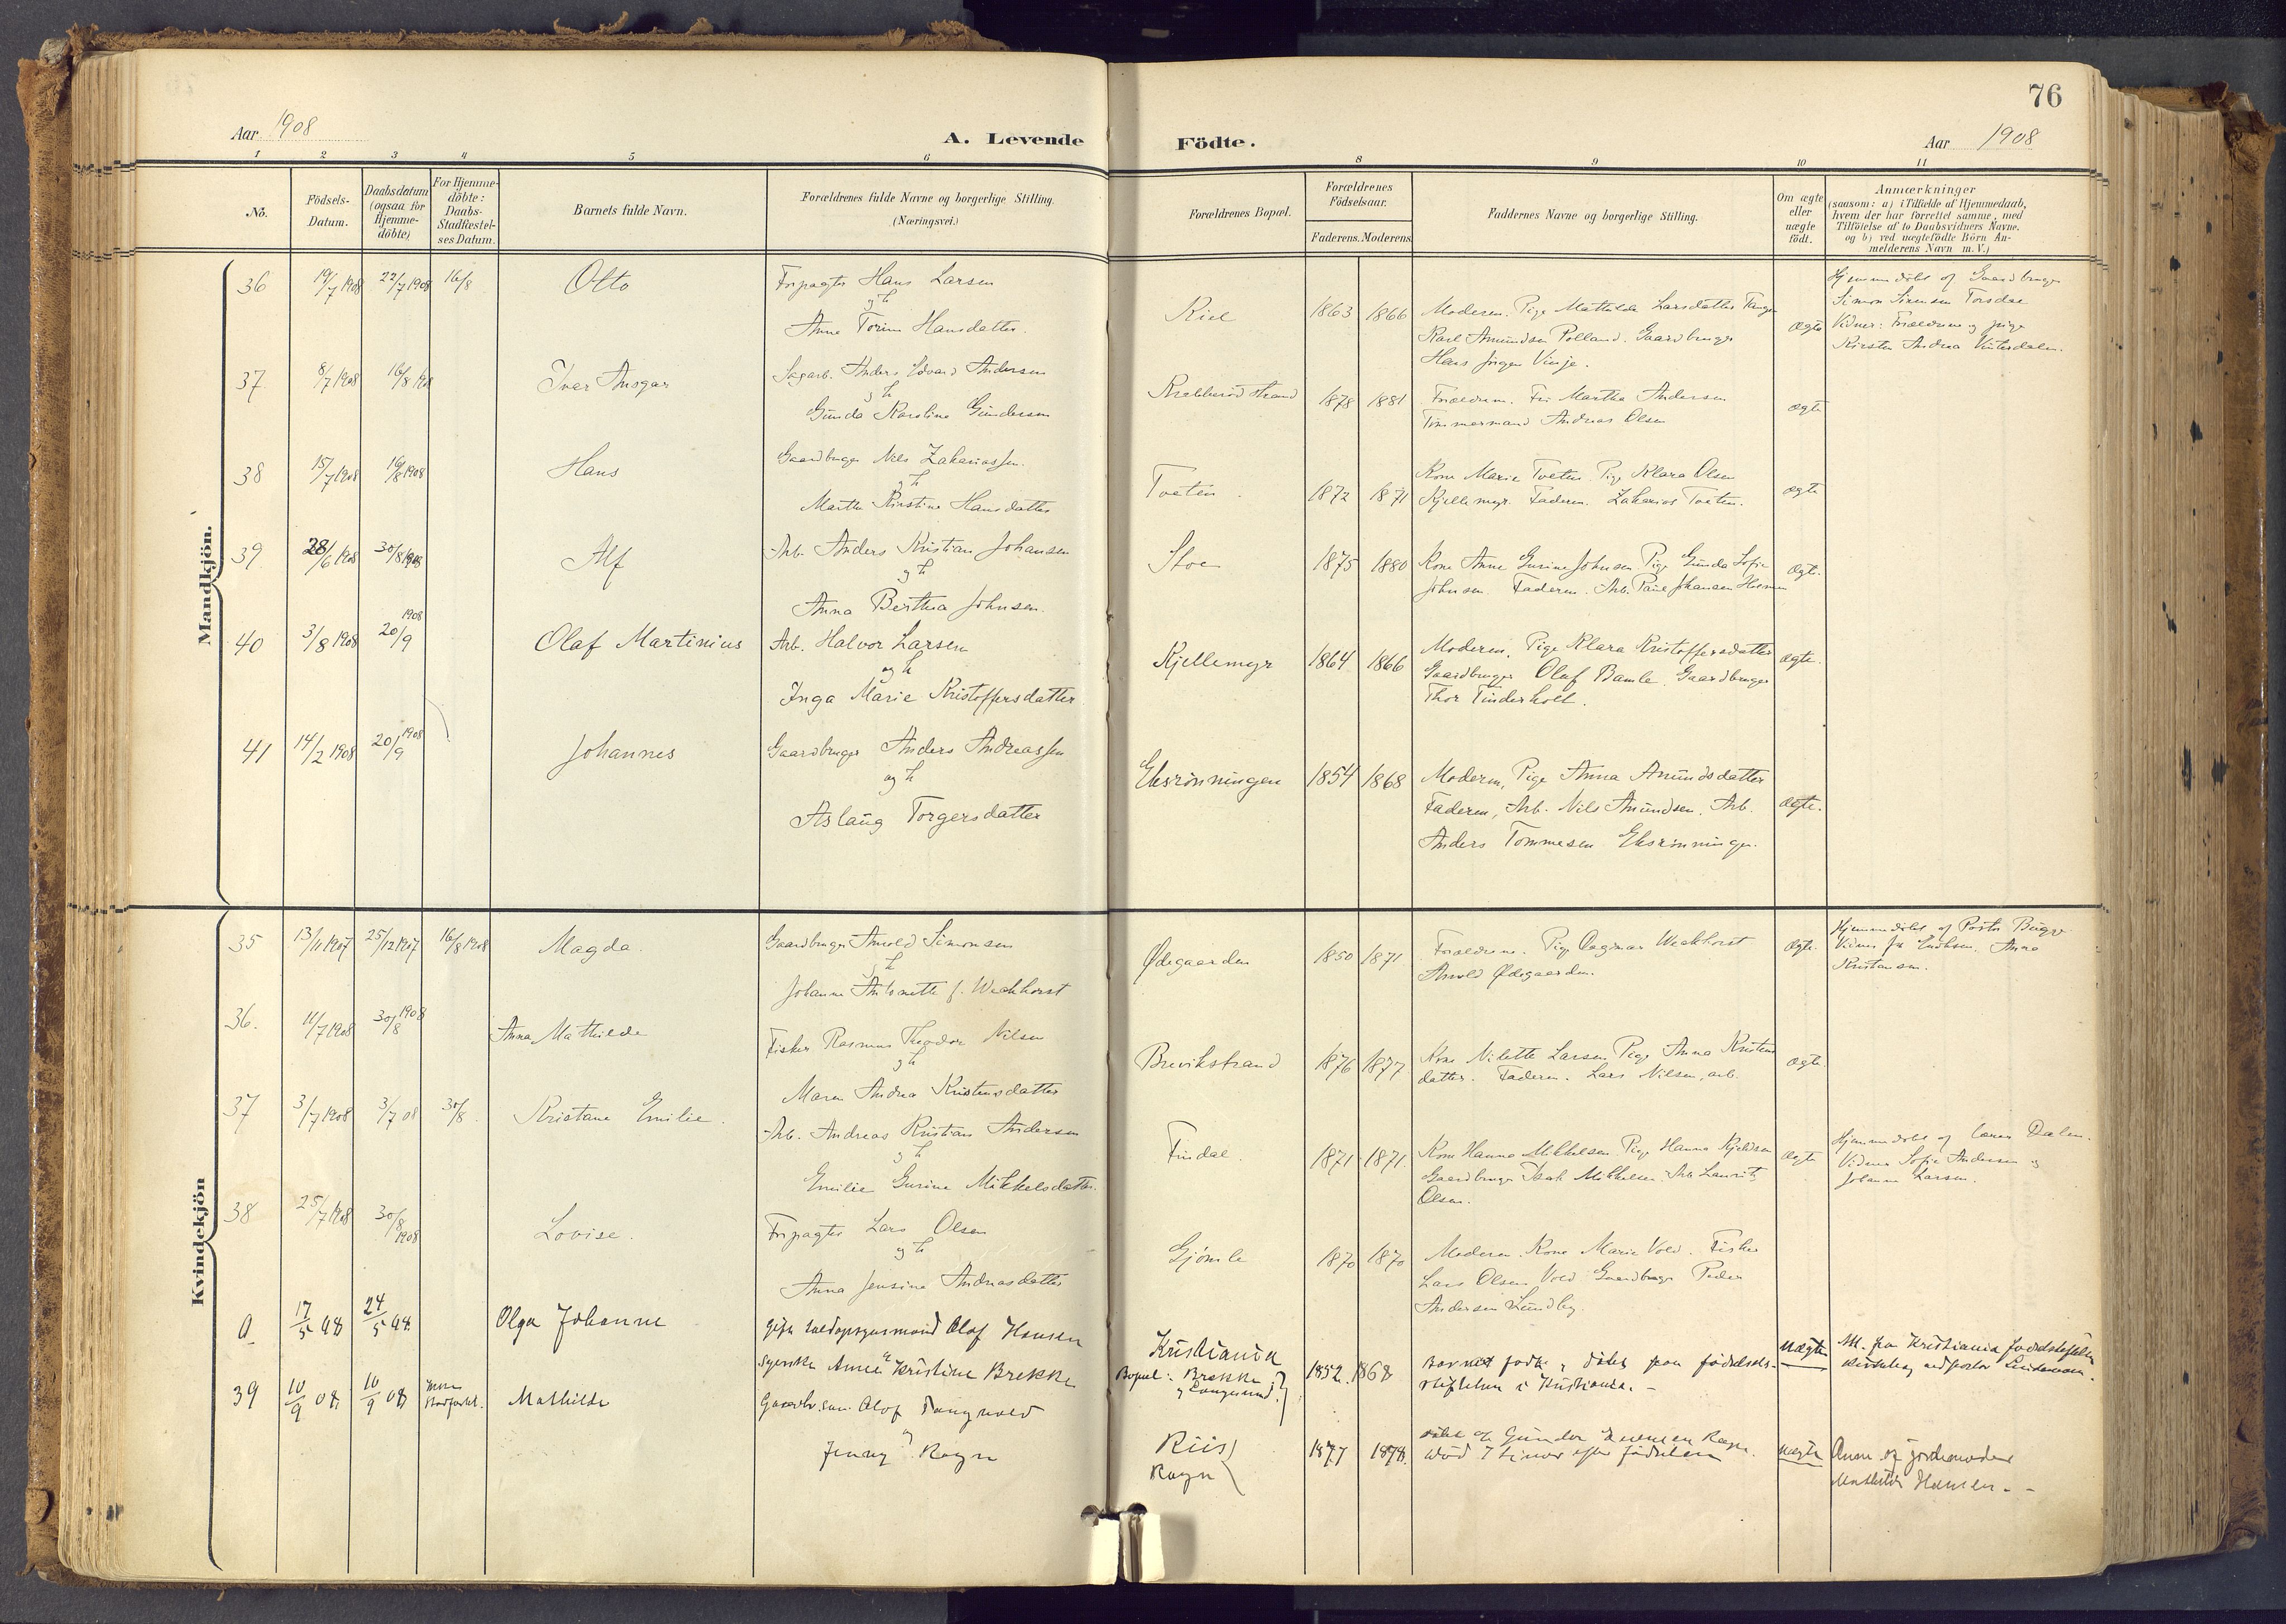 76
Aar 1908
A. Levende Födte.
Aar 1908
1 2 3 4 5 6 8 9 10 11
No.
Födsels-
Datum.
Daabsdatum
(ogsaa for
Hjemme-
döbte)
For Hjemme-
döbte:
Daabs-
Stadfæstel-
ses Datum.
Barnets fulde Navn.
Forældrenes fulde Navne og borgerlige Stilling.
(Næringsvei.)
Forældrenes Bopæl.
Forældrenes
Födselsaar.
Faderens. Moderens.
Faddernes Navne og borgerlige Stilling.
Om ægte
eller
uægte
födt.
Anmærkninger
(saasom: a) i Tilfælde af Hjemmedaab,
hvem der har forrettet samme, med
Tilföielse af to Daabsvidners Navne.
og b) ved uægtefödte Börn An-
melderens Navn m.V.)
Mandkjön.
36 19/7 1908 22/7 1908 16/8 Otto
Forpagter Hans Larsen
og h
Anne Torine Hansdatter.
1863 1866
Moderen. Pige Mathilde Larsdatter
Karl Amundsen Polland. Gaardbruger
Hans Jørgen Vinje.
Ægte
Hjemmedøbt af Gaardbruger
Simon Simonsen Torsdal
Vidner: Forældrene og pige
Kirsten Andrea Vinterdalen.
37 8/7 1908 16/8 1908 Ivar Ansgar
Sagarb. Anders Edvard Andersen
og h
Gunda Karoline Gundersen
Krabberød strand 1878 1881
Forældrene. Fru Martha Andersen
Tømmermand Andreas Olsen
ægte
38 15/7 1908 16/8 1908 Hans
Gaardbruger Nils Zakariassen.
og h
Marthe Kirstine Hansdatter
Tveten. 1872 1871
Kone Marie Tveten. Pige Klara Olsen
Kjellemyr. Faderen. Zakarias Tveten.
ægte
39 28/6 1908 30/8 1908 Alf
Arb. Anders Kristian Johansen
og h
Anna Bertha Johnsen.
Stoe 1875 1880
Kone Anne Gurine Johnsen. Pige Gunda Sofie
Johnsen. Faderen. Arb. Paul Johansen
ægte.
40 3/8 1908 20/9 1908 Olaf Martinius
Arb. Halvor Larsen
og h
Inga Marie Kristoffersdatter
Kjellemyr 1864 1866
Moderen, Pige Klara Kristoffersdatter
Gaardbruger Olaf Bamle. Gaardbruger
Thor Tinderholt.
ægte.
41 14/2 1908 20/9 1908 Johannes
Gaardbruger Anders Andreassen
og h
Aslaug Torgersdatter
Eksrønningen 1854 1868
Moderen, Pige Anna Amundsdatter
Faderen, Arb. Nils Amundsen. Arb.
Anders Tommesen Eksrønningen.
ægte.
Kvindekjön
35 13/11 1907 25/12 1907 16/8 1908 Magda.
Gaardbruger Arnold Simonsen
og h
Johanne f. Weckhorst
Ødegaarden 1850 1871
Forældrene. Pige Dagmar Weckhorst
Arnold Ødegaarden.
ægte.
Hjemmedøbt af Pastor Bugge.
Anna
Kristensen.
36. 11/7 1908 30/8 1908 Anna Mathilde
Fisker Rasmus Theodor Nilsen
og h
Maren Andrea Kristensdatter
Brevikstrand 1876 1877
Kone Nilette Larsen. Pige Anna Kristens
datter. Faderen. Lars Nilsen, arb.
ægte
37 3/7 1908 3/7 08 30/8. Kristane Emilie.
Arb. Andreas Kristian Andersen
og h
Emilie Gurine Mikkelsdatter.
Findal. 1871 1871.
Kone Hanna Mikkelsen. Pige Hanna Kjeldsen
Gaardbruger Isak Mikkelsen. Arb. Laurits
Olsen.
ægte
Hjemmedøbt af lærer Dalen.
Vidner Sofie Andersen og
Johanne Larsen.
38 25/7 1908 30/8 1908 Lovise.
Forpagter Lars Olsen
og h
Anna Jensine Andreasdatter
Gjømle 1870 1870
Moderen. Kone Marie Vold. Fisker
Lars Olsen Vold. Gaardbruger Peder
Andersen Lundby.
a 17/5 08 24/5 08. Olga Johanne
gift Olaf Hansen
Anne Kristine Brekke
Kristiania
Bopæl: Brekke
Langesund. 1852. 1868
Barnet født og døbt paa fødsels-
stiftelsen i Kristiania. -
uægte
Att. fra Kristiania fødselsstiftelse
39 10/9 08 10/9 08 Mathilde
Gaardbr. søn Olaf Tangvald
og
Jenny Rogn
Riis
Rogn 1877 1878.
døbt af Gunder
død 7 timer efter fødselen
uægte
Anm. af jordemoder
Mathilde Hansen. -